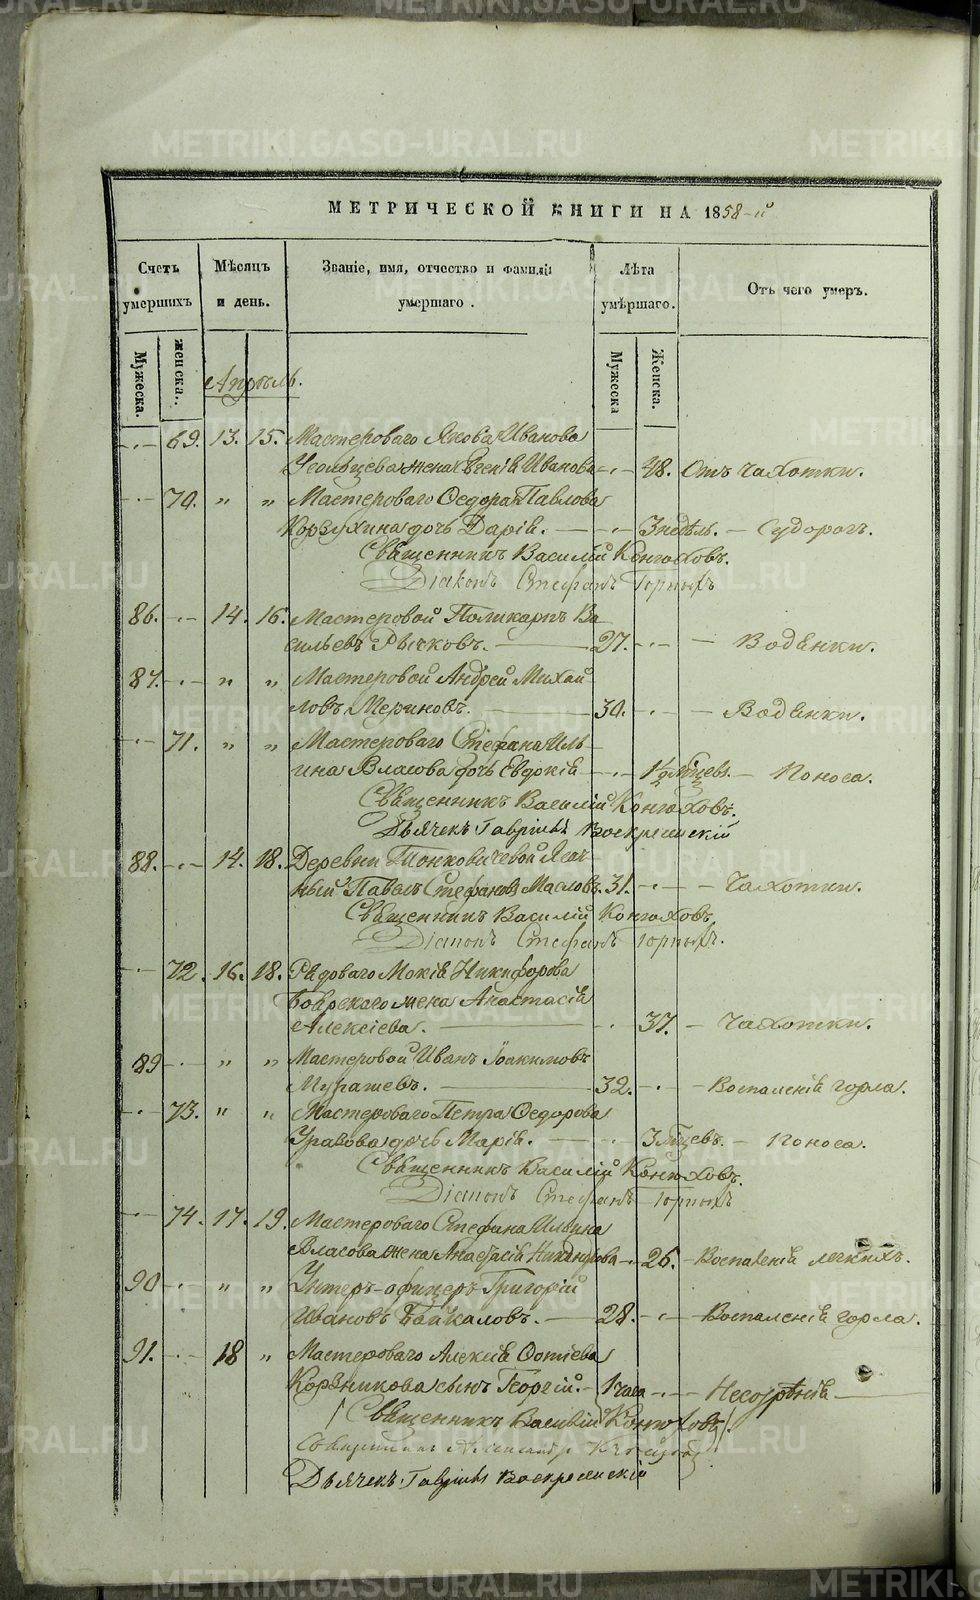 МЕТРИЧЕСКОЙ КНИГИ НА 1858-й
Счетъ умершихъ
Мѣсяцъ и день.
Званіе, имя, отчество и фамилія умершаго.
Лѣта умѣршаго.
Отъ чего умеръ.
Мужеска.
женска.
Мужеска
Женска.
Апрѣль.
-·- 69. 13. 15. Мастероваго Якова Иванова
Усольцева жена Евгенія Иванова -·- 48. Отъ чахотки.
-·- 70. „ „ Мастероваго Ѳедора Павлова
Корзухина дочь Дарія. -·- 3 недѣль. - Судорогъ.
Священникъ Василій Конюховъ.
Діаконъ Стефанъ Горныхъ
86. -·- 14. 16. Мастеровой Поликарпъ Ва
сильевъ Рычковъ. 27. -·- - Водянки.
87. -·- „ „ Мастеровой Андрей Михай
ловъ Мериновъ. 30. -·- - Водянки.
-·- 71. „ „ Мастероваго Стефана Иль
ина Власова дочь Евдокія -·- 1½ мѣсцевъ. - Поноса.
Священникъ Василій Конюховъ.
Дьячекъ Гавріилъ Воскресенскій
88. -·- 14. 18. Деревни
Павелъ Стефановъ Масловъ. 31. -·- - Чахотки.
Священникъ Василій Конюховъ.
Діаконъ Стефанъ Горныхъ.
-·- 72. 16. 18. Рядоваго Мокія Никифорова
Боярскаго жена Анастасія
Алексіева. -·- 37. - Чахотки.
89 -·- „ „ Мастеровой Иванъ Іоакимовъ
Мурашевъ. 32. -·- - Воспаленія горла.
-·- 73. „ „ Мастероваго Петра Ѳедорова
дочь Марія. -·- 3 мѣсцевъ. - Поноса.
Священникъ Василій Конюховъ.
Діаконъ Стефанъ Горныхъ
-·- 74. 17. 19. Мастероваго Стефана Ильина
Власова жена Анастасія Никандрова -·- 26. - Воспаленія легкихъ.
90 -·- „ „ Унтеръ-офицеръ Григорій
Ивановъ Байкаловъ. 28. -·- - Воспаленія горла.
91. -·- 18 „ Мастероваго Алексія Фотіева
Корзникова сынъ Георгій. - 1 часа -·- - Несозрѣнія
/ Священникъ Василій Конюховъ /.
Священникъ Александръ
Дьячекъ Гавріилъ Воскресенскій
METRIKI.GASO-URAL.RU